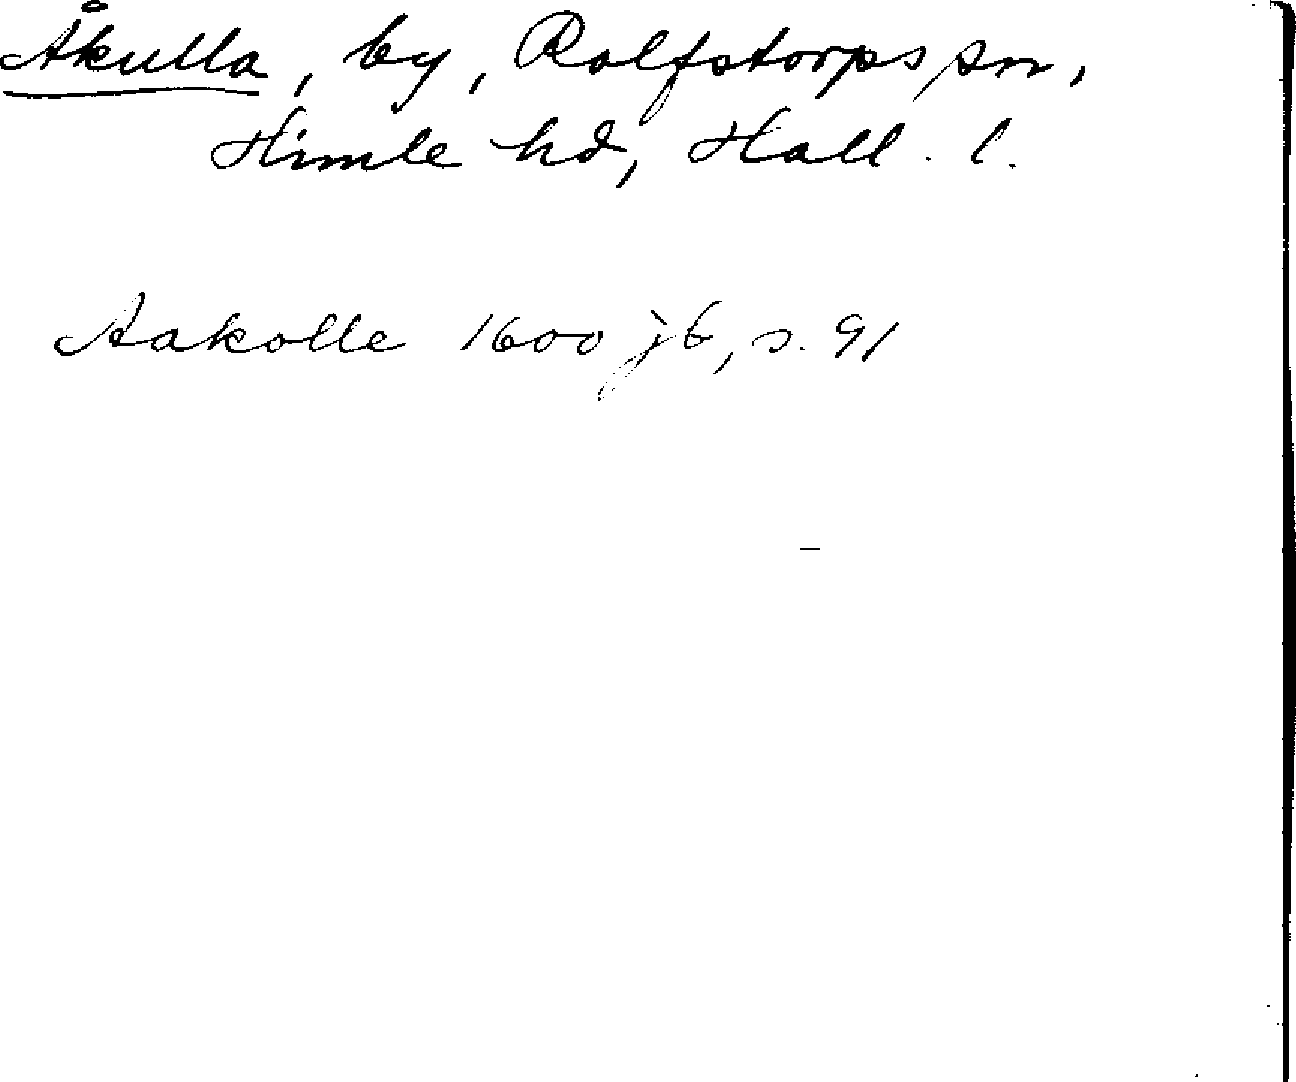 Åkulla, by, Rolfstorps sn,
Himle hd, Hall. l.
Aakolle 1600 jb, s. 91